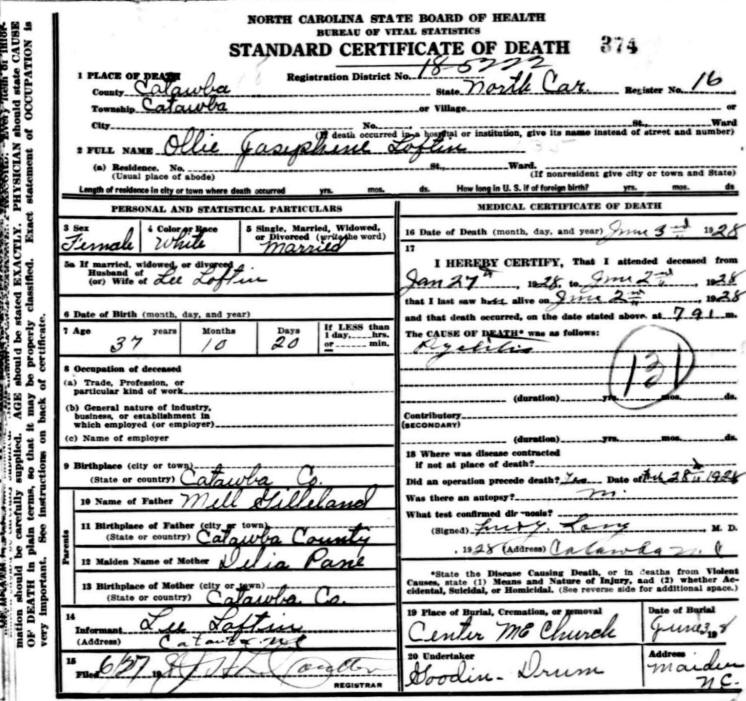 NORTH CAROLINA STATE BOARD OF HEALTH
BUREAU OF VITAL STATISTICS
STANDARD CERTIFICATE OF DEATH 374
1 PLACE OF DEATH Registration District No. 18-5222
County Catawba State North Car. Register No. 16
Township Catawba or Village
City No. St., Ward
(If death occurred in a hospital or institution, give its name instead of street and number)
2 FULL NAME Ollie Josephine Loftin
(a) Residence. No. St., Ward.
(Usual place of abode) (If nonresident give city or town and State)
Length of residence in city or town where death occurred yrs. mos. ds. How long in U. S. if of foreign birth? yrs. mos. ds.
PERSONAL AND STATISTICAL PARTICULARS
3 Sex 4 Color or Race 5 Single, Married, Widowed,
or Divorced (write the word)
Female White Married
5a If married, widowed, or divorced
Husband of
(or) Wife of Lee Loftin
6 Date of Birth (month, day, and year)
7 Age years Months Days If LESS than
1 day, hrs.
or min.
37 10 20
8 Occupation of deceased
(a) Trade, Profession, or
particular kind of work
(b) General nature of industry,
business, or establishment in
which employed (or employer)
(c) Name of employer
9 Birthplace (city or town)
(State or country) Catawba Co.
Parents
10 Name of Father Mell Gilleland
11 Birthplace of Father (city or town)
(State or country) Catawba County
12 Maiden Name of Mother Delia Pane
13 Birthplace of Mother (city or town)
(State or country) Catawba Co.
14
Informant Lee Loftin
(Address) Catawba NC
15
Filed 6/27 19
REGISTRAR
MEDICAL CERTIFICATE OF DEATH
16 Date of Death (month, day, and year) June 3rd 1928
17
I HEREBY CERTIFY, That I attended deceased from
Jan 27th, 1928, to June 2nd, 1928
that I last saw her alive on June 2nd, 1928
and that death occurred, on the date stated above, at m.
The CAUSE OF DEATH* was as follows:
Pyelitis
131
(duration) yrs. mos. ds.
Contributory
(SECONDARY)
(duration) yrs. mos. ds.
18 Where was disease contracted
if not at place of death?
Did an operation precede death? Yes Date of 28 1928
Was there an autopsy?
What test confirmed diagnosis?
(Signed) Long M. D.
, 1928 (Address) Catawba N C
*State the Disease Causing Death, or in deaths from Violent
Causes, state (1) Means and Nature of Injury, and (2) whether Ac-
cidental, Suicidal, or Homicidal. (See reverse side for additional space.)
19 Place of Burial, Cremation, or removal Date of Burial
Center ME Church June 3 1928
20 Undertaker Address
Goodin - Drum Maiden
N.C.
mation should be carefully supplied. AGE should be stated EXACTLY. PHYSICIAN should state CAUSE
OF DEATH in plain terms, so that it may be properly classified. Exact statement of OCCUPATION is
very important. See instructions on back of certificate.